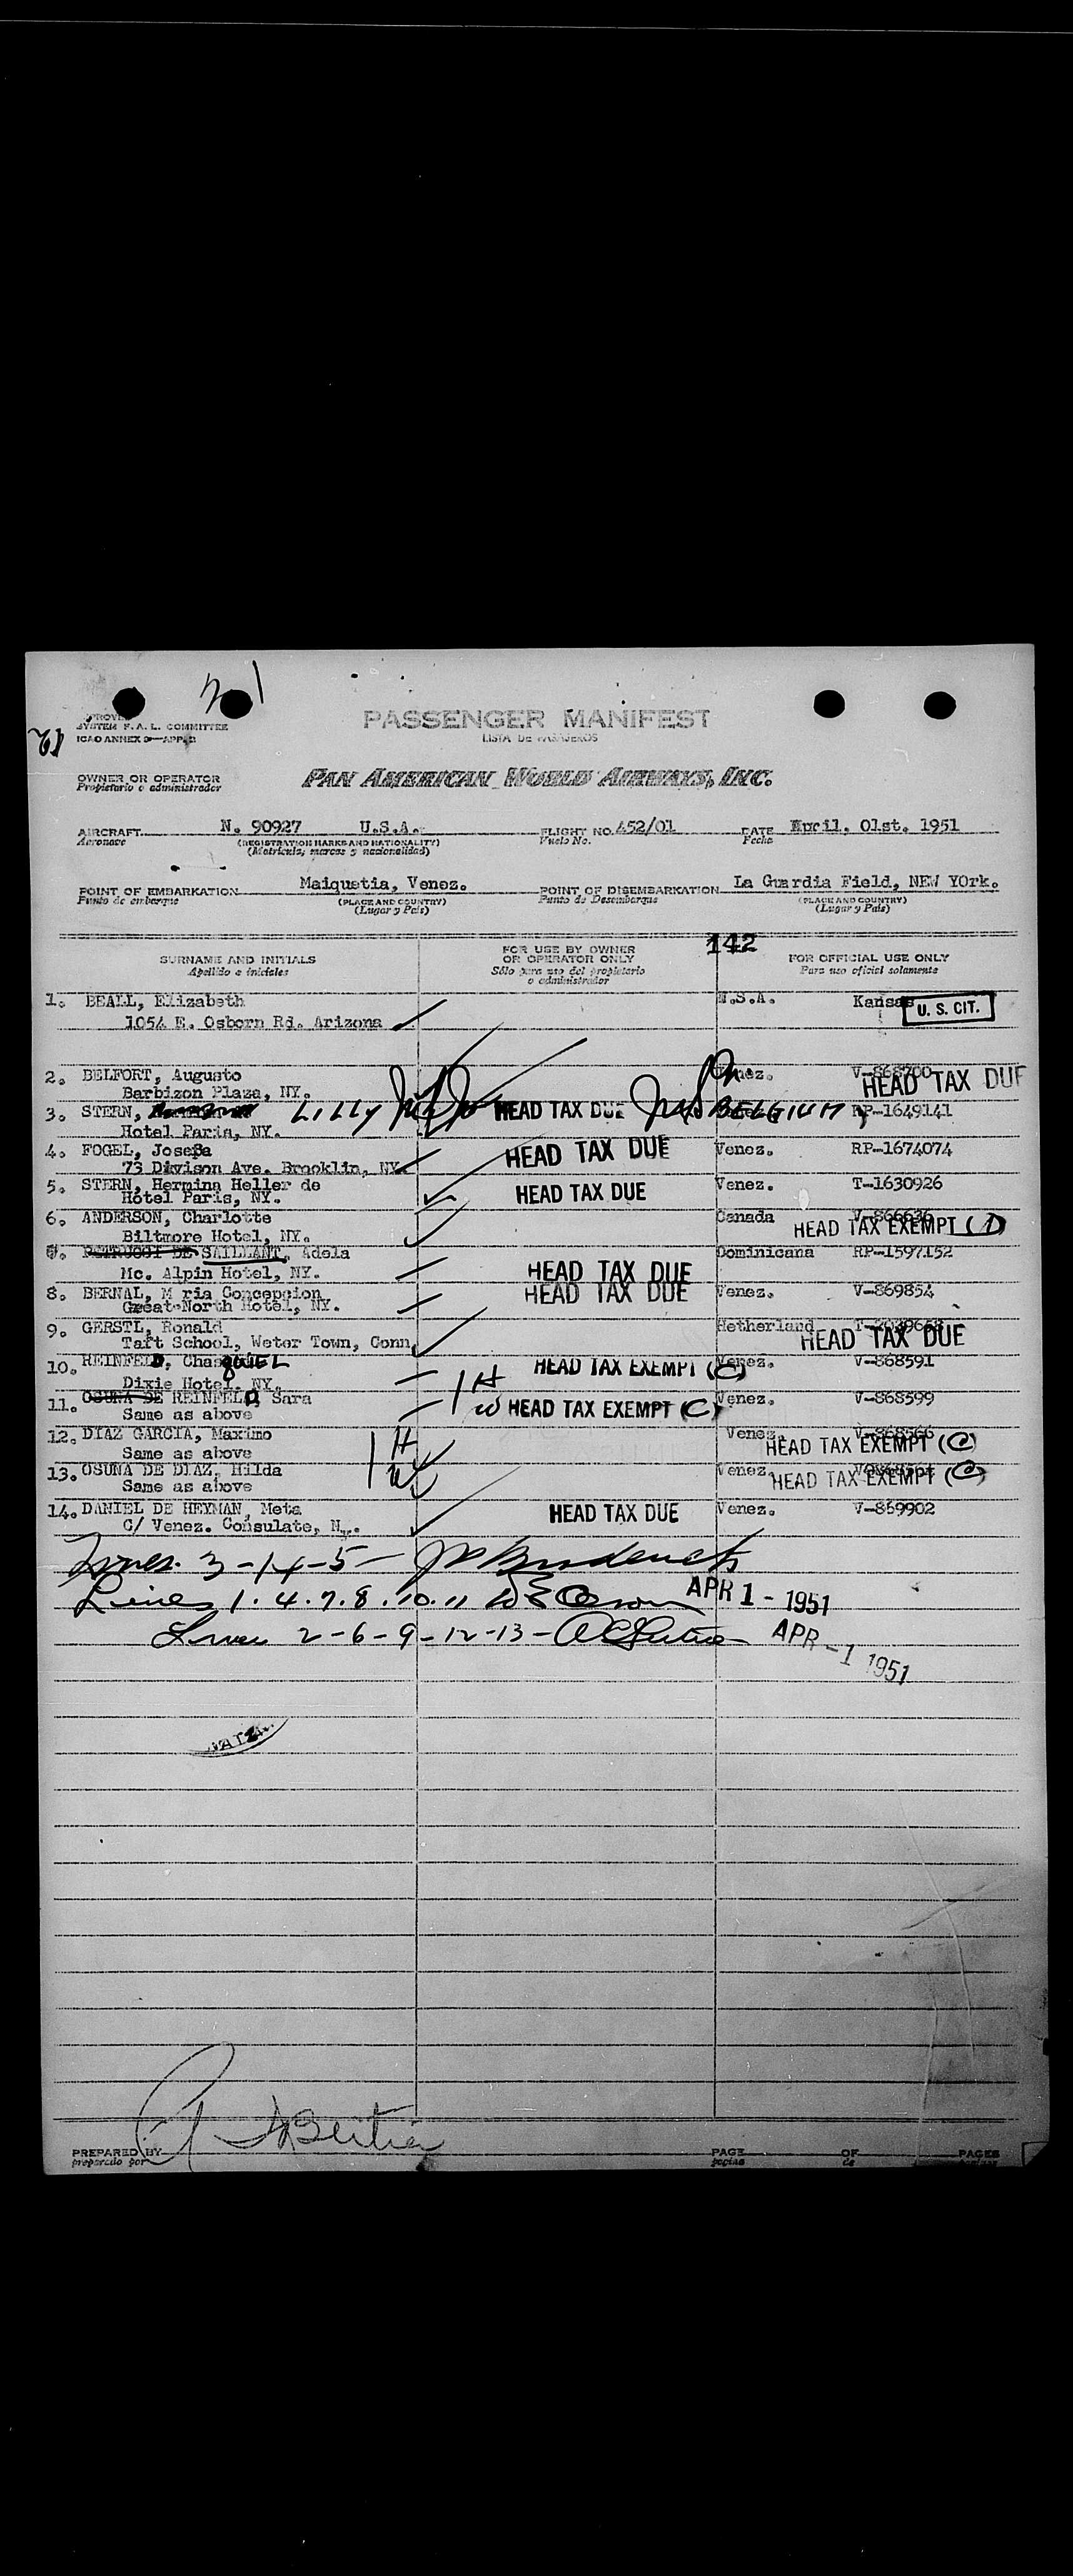 SYSTEM F.A.L. COMMITTEE
ICAO ANNEX 9—APP.
PASSENGER MANIFEST
LISTA DE PASAJEROS
OWNER OR OPERATOR
Propietario o administrador
PAN AMERICAN WORLD AIRWAYS, INC.
AIRCRAFT N. 90927 U.S.A. FLIGHT NO. 452/01 DATE April. 01st. 1951
Aeronave (REGISTRATION MARKS AND NATIONALITY) Vuelo No. Fecha
(Matricula, marcas y nacionalidad)
POINT OF EMBARKATION Maiquetia, Venez. POINT OF DISEMBARKATION La Guardia Field, NEW YOrk.
Punto de embarque (PLACE AND COUNTRY) Punto de Desembarque (PLACE AND COUNTRY)
(Lugar y País) (Lugar y País)
142
SURNAME AND INITIALS FOR USE BY OWNER OR OPERATOR ONLY FOR OFFICIAL USE ONLY
Apellido e iniciales Sólo para uso del propietario o administrador Para uso oficial solamente
1. BEALL, Elizabeth U.S.A. Kansas U. S. CIT.
1054 E. Osborn Rd. Arizona
2. BELFORT, Augusto Venez. V-868700 HEAD TAX DUE
Barbizon Plaza, NY.
3. STERN, LILLY HEAD TAX DUE BELGIUM RP-1649141
Hotel Paris, NY.
4. FOGEL, Josefa HEAD TAX DUE Venez. RP-1674074
73 Divison Ave. Brooklin, NY
5. STERN, Hermina Heller de HEAD TAX DUE Venez. T-1630926
Hotel Paris, NY.
6. ANDERSON, Charlotte Canada V-866636 HEAD TAX EXEMPT (D)
Biltmore Hotel, NY.
7. PETRUCCI DE SAILLANT, Adela Dominicana RP-1597152
Mc. Alpin Hotel, NY. HEAD TAX DUE
8. BERNAL, M ria Concepcion HEAD TAX DUE Venez. V-869854
Great North Hotel, NY.
9. GERSTL, Ronald Netherland HEAD TAX DUE
Taft School, Weter Town, Conn
10. REINFELD, Chasquiel HEAD TAX EXEMPT (C) Venez. V-868591
Dixie Hotel, NY. H
11. OSUNA DE REINFELD, Sara W HEAD TAX EXEMPT (C) Venez. V-868599
Same as above
12. DIAZ GARCIA, Maximo H Venez. V-868566 HEAD TAX EXEMPT (C)
Same as above
13. OSUNA DE DIAZ, Hilda W Venez. HEAD TAX EXEMPT (C)
Same as above
14. DANIEL DE HEYMAN, Meta HEAD TAX DUE Venez. V-869902
C/ Venez. Consulate, N.Y.
Lines 3-14-5-
Lines 1.4.7.8.10.11 APR 1 - 1951
Lines 2-6-9-12-13- APR -1 1951
PREPARED BY PAGE OF PAGES
preparado por